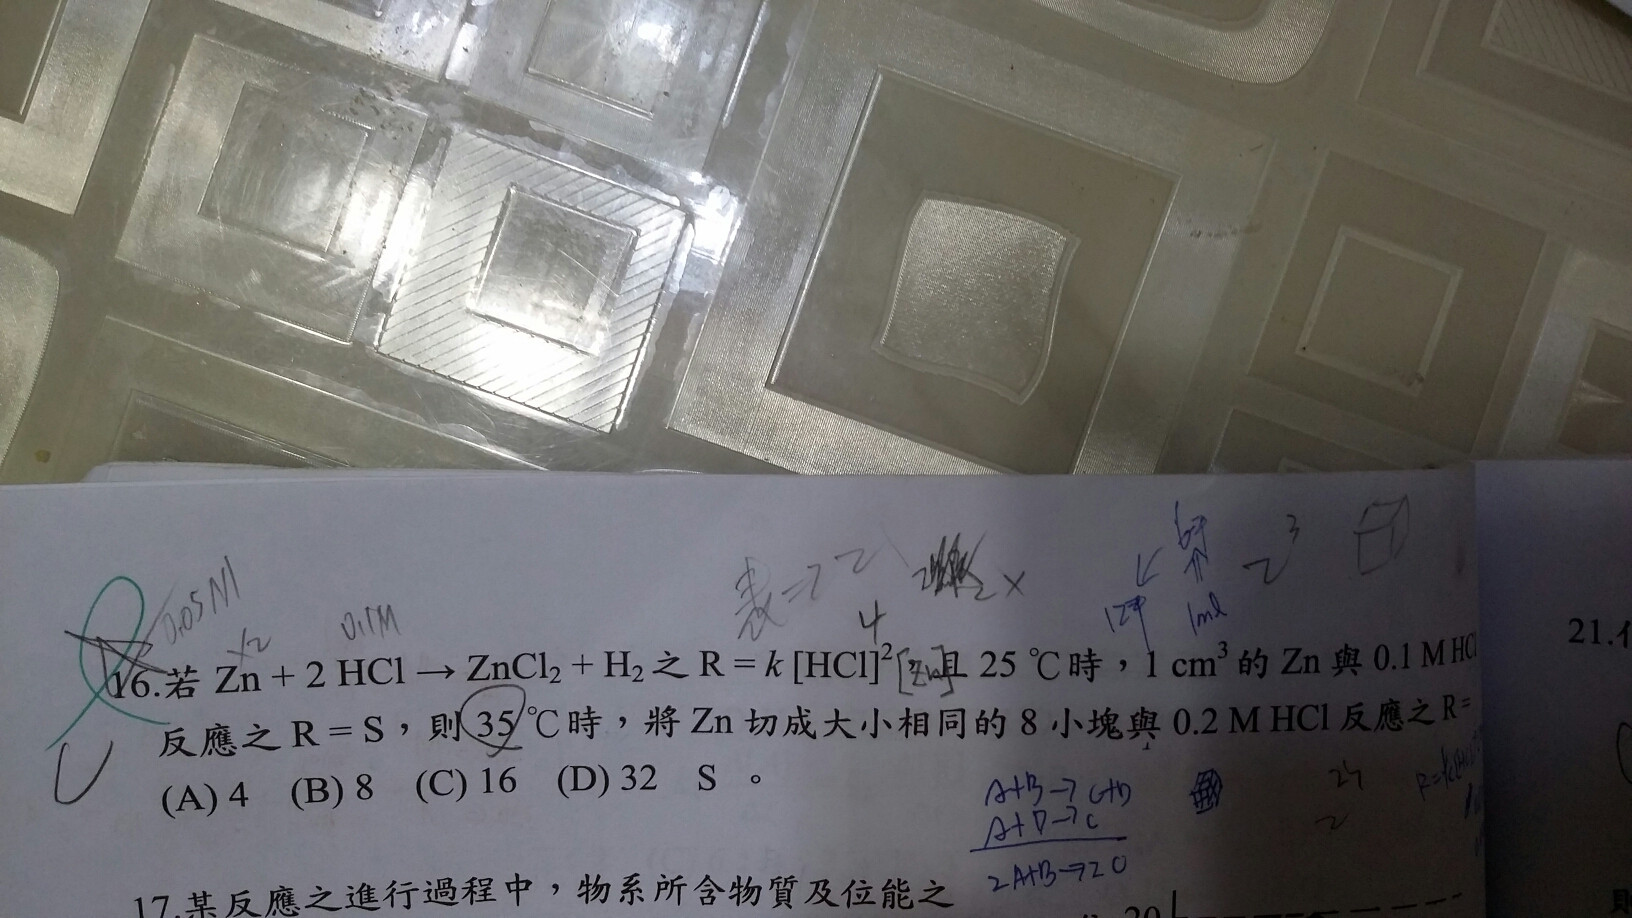 0.05M
×2
0.1M
表=2²
4
2³
1ml
16.若 Zn + 2 HCl → ZnCl₂ + H₂ 之 R = k [HCl]²[Zn] 且 25 ℃時，1 cm³ 的 Zn 與 0.1 M HCl
反應之 R = S，則 35 ℃時，將 Zn 切成大小相同的 8 小塊與 0.2 M HCl 反應之 R =
(A) 4 (B) 8 (C) 16 (D) 32 S 。
A+B→C+D
A+D→C
2A+B→2C
17.某反應之進行過程中，物系所含物質及位能之
21.
20